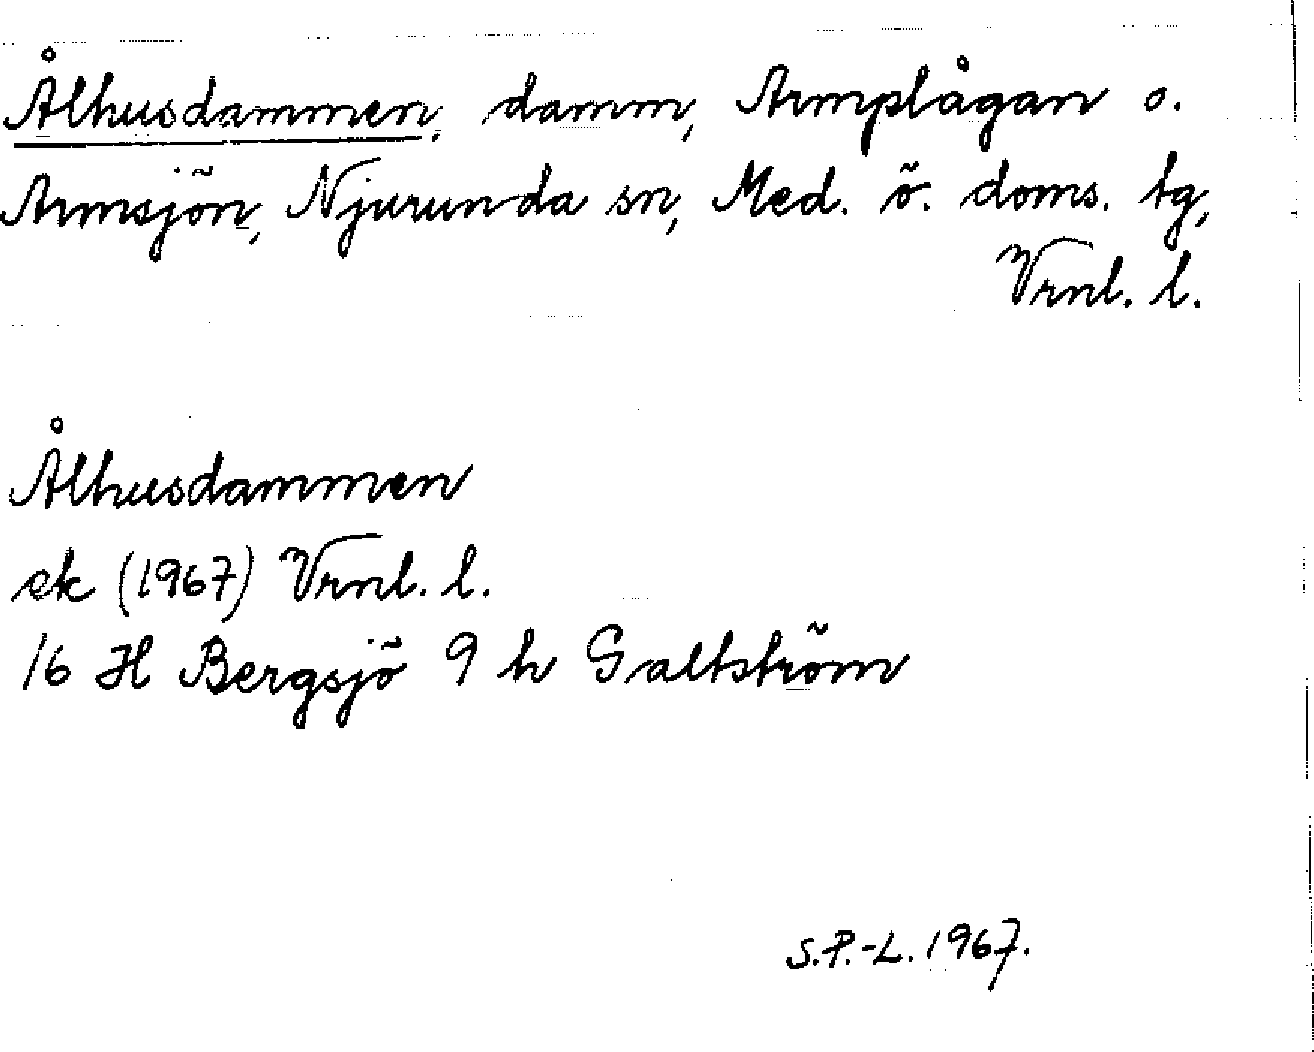 Ålhusdammen, damm, Armplågan o.
Armsjön, Njurunda sn, Med. ö. doms. tg,
Vrnl. l.
Ålhusdammen
ek (1967) Vrnl. l.
16 H Bergsjö 9 h Galtström
S.P.-L. 1967.